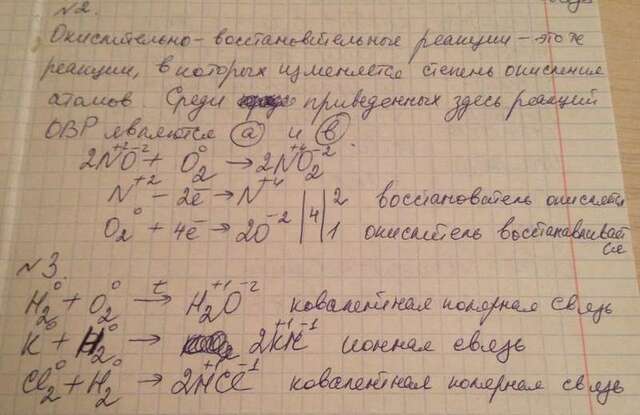 №2.
Окислительно-восстановительные реакции – это ж
реакции, в которых изменяется степень окисления
атомов. Среди приведенных здесь реакций
ОВР являются а и в.
2N⁺²O⁻² + O₂⁰ → 2N⁺⁴O₂⁻²
N⁺² – 2ē → N⁺⁴ | | 2 восстановитель окисляется
O₂⁰ + 4ē → 2O⁻² | 4 | 1 окислитель восстанавливается
№3.
H₂⁰ + O₂⁰ t→ H₂⁺¹O⁻² ковалентная полярная связь
K⁰ + H₂⁰ → 2K⁺¹H⁻¹ ионная связь
Cl₂⁰ + H₂⁰ → 2H⁺¹Cl⁻¹ ковалентная полярная связь